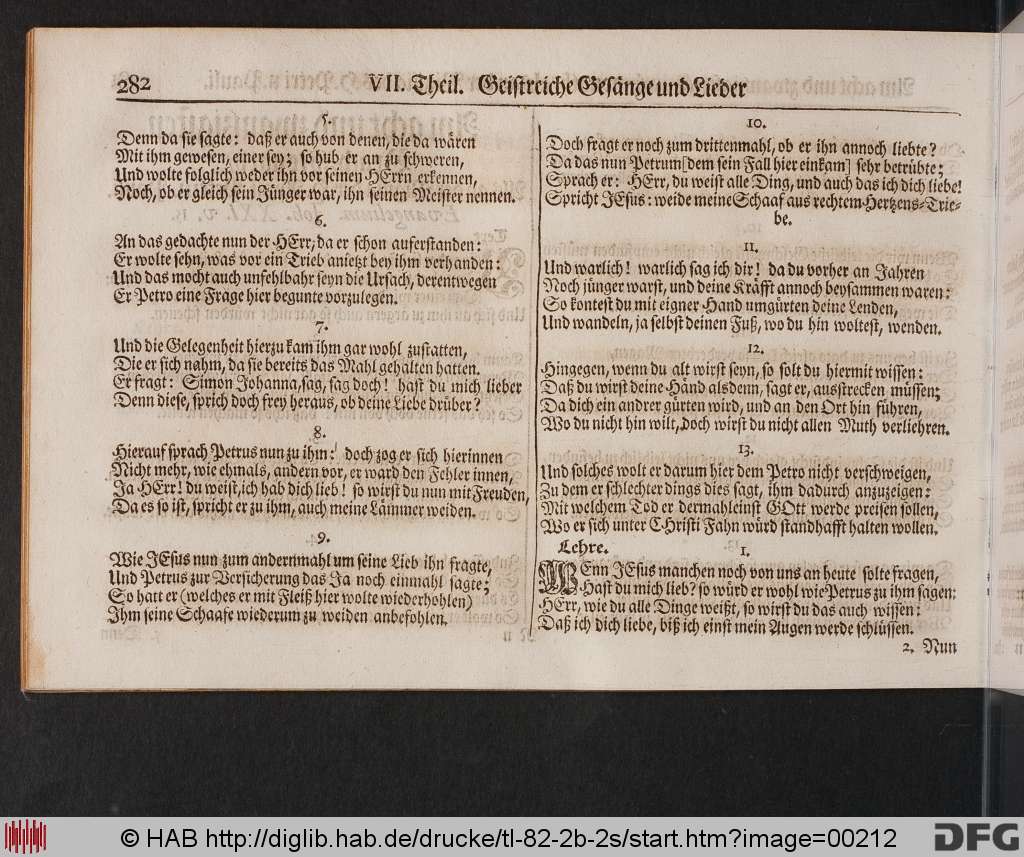 282
VII. Theil. Geistreiche Gesänge und Lieder
5.
Denn da sie sagte: daß er auch von denen, die da wären
Mit ihm gewesen, einer sey; so hub er an zu schweren,
Und wolte folglich weder ihn vor seinen HErrn erkennen,
Noch, ob er gleich sein Jünger war, ihn seinen Meister nennen.
6.
An das gedachte nun der HErr, da er schon auferstanden:
Er wolte sehn, was vor ein Trieb anietzt bey ihm verhanden:
Und das mocht auch unfehlbahr seyn die Ursach, derentwegen
Er Petro eine Frage hier begunte vorzulegen.
7.
Und die Gelegenheit hierzu kam ihm gar wohl zustatten,
Die er sich nahm, da sie bereits das Mahl gehalten hatten.
Er fragt: Simon Johanna, sag, sag doch! hast du mich lieber
Denn diese, sprich doch frey heraus, ob deine Liebe drüber?
8.
Hierauf sprach Petrus nun zu ihm: doch zog er sich hierinnen
Nicht mehr, wie ehmals, andern vor, er ward den Fehler innen,
Ja HErr! du weist, ich hab dich lieb! so wirst du nun mit Freuden,
Da es so ist, spricht er zu ihm, auch meine Lämmer weiden.
9.
Wie JEsus nun zum andernmahl um seine Lieb ihn fragte,
Und Petrus zur Versicherung das Ja noch einmahl sagte;
So hatt er (welches er mit Fleiß hier wolte wiederhohlen)
Ihm seine Schaafe wiederum zu weiden anbefohlen.
10.
Doch fragt er noch zum drittenmahl, ob er ihn annoch liebte?
Da das nun Petrum[dem sein Fall hier einkam] sehr betrübte;
Sprach er: HErr, du weist alle Ding, und auch das ich dich liebe!
Spricht JEsus: weide meine Schaaf aus rechtem Hertzens-Trie-
be.
11.
Und warlich! warlich sag ich dir! da du vorher an Jahren
Noch jünger warst, und deine Kräfft annoch beysammen waren:
So kontest du mit eigner Hand umgürten deine Lenden,
Und wandeln, ja selbst deinen Fuß, wo du hin woltest, wenden.
12.
Hingegen, wenn du alt wirst seyn, so solt du hiermit wissen:
Daß du wirst deine Händ alsdenn, sagt er, ausstrecken müssen;
Da dich ein andrer gürten wird, und an den Ort hin führen,
Wo du nicht hin wilt, doch wirst du nicht allen Muth verliehren.
13.
Und solches wolt er darum hier dem Petro nicht verschweigen,
Zu dem er schlechter dings dies sagt, ihm dadurch anzuzeigen:
Mit welchem Tod er dermahleinst GOtt werde preisen sollen,
Wo er sich unter Christi Fahn würd standhafft halten wollen.
Lehre. 1.
WEnn JEsus manchen noch von uns an heute solte fragen,
Hast du mich lieb? so würd er wohl wie Petrus zu ihm sagen:
HErr, wie du alle Dinge weißt, so wirst du das auch wissen:
Daß ich dich liebe, biß ich einst mein Augen werde schlüssen.
2. Nun
© HAB http://diglib.hab.de/drucke/tl-82-2b-2s/start.htm?image=00212
DFG